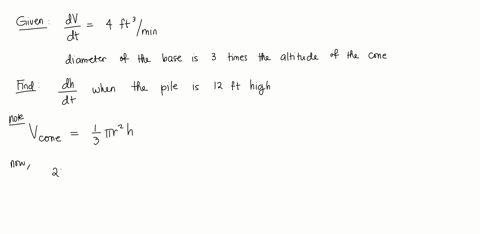 Given: dV/dt = 4 ft³/min
diameter of the base is 3 times the altitude of the cone
Find: dh/dt when the pile is 12 ft high
note
V cone = 1/3 πr²h
now,
2